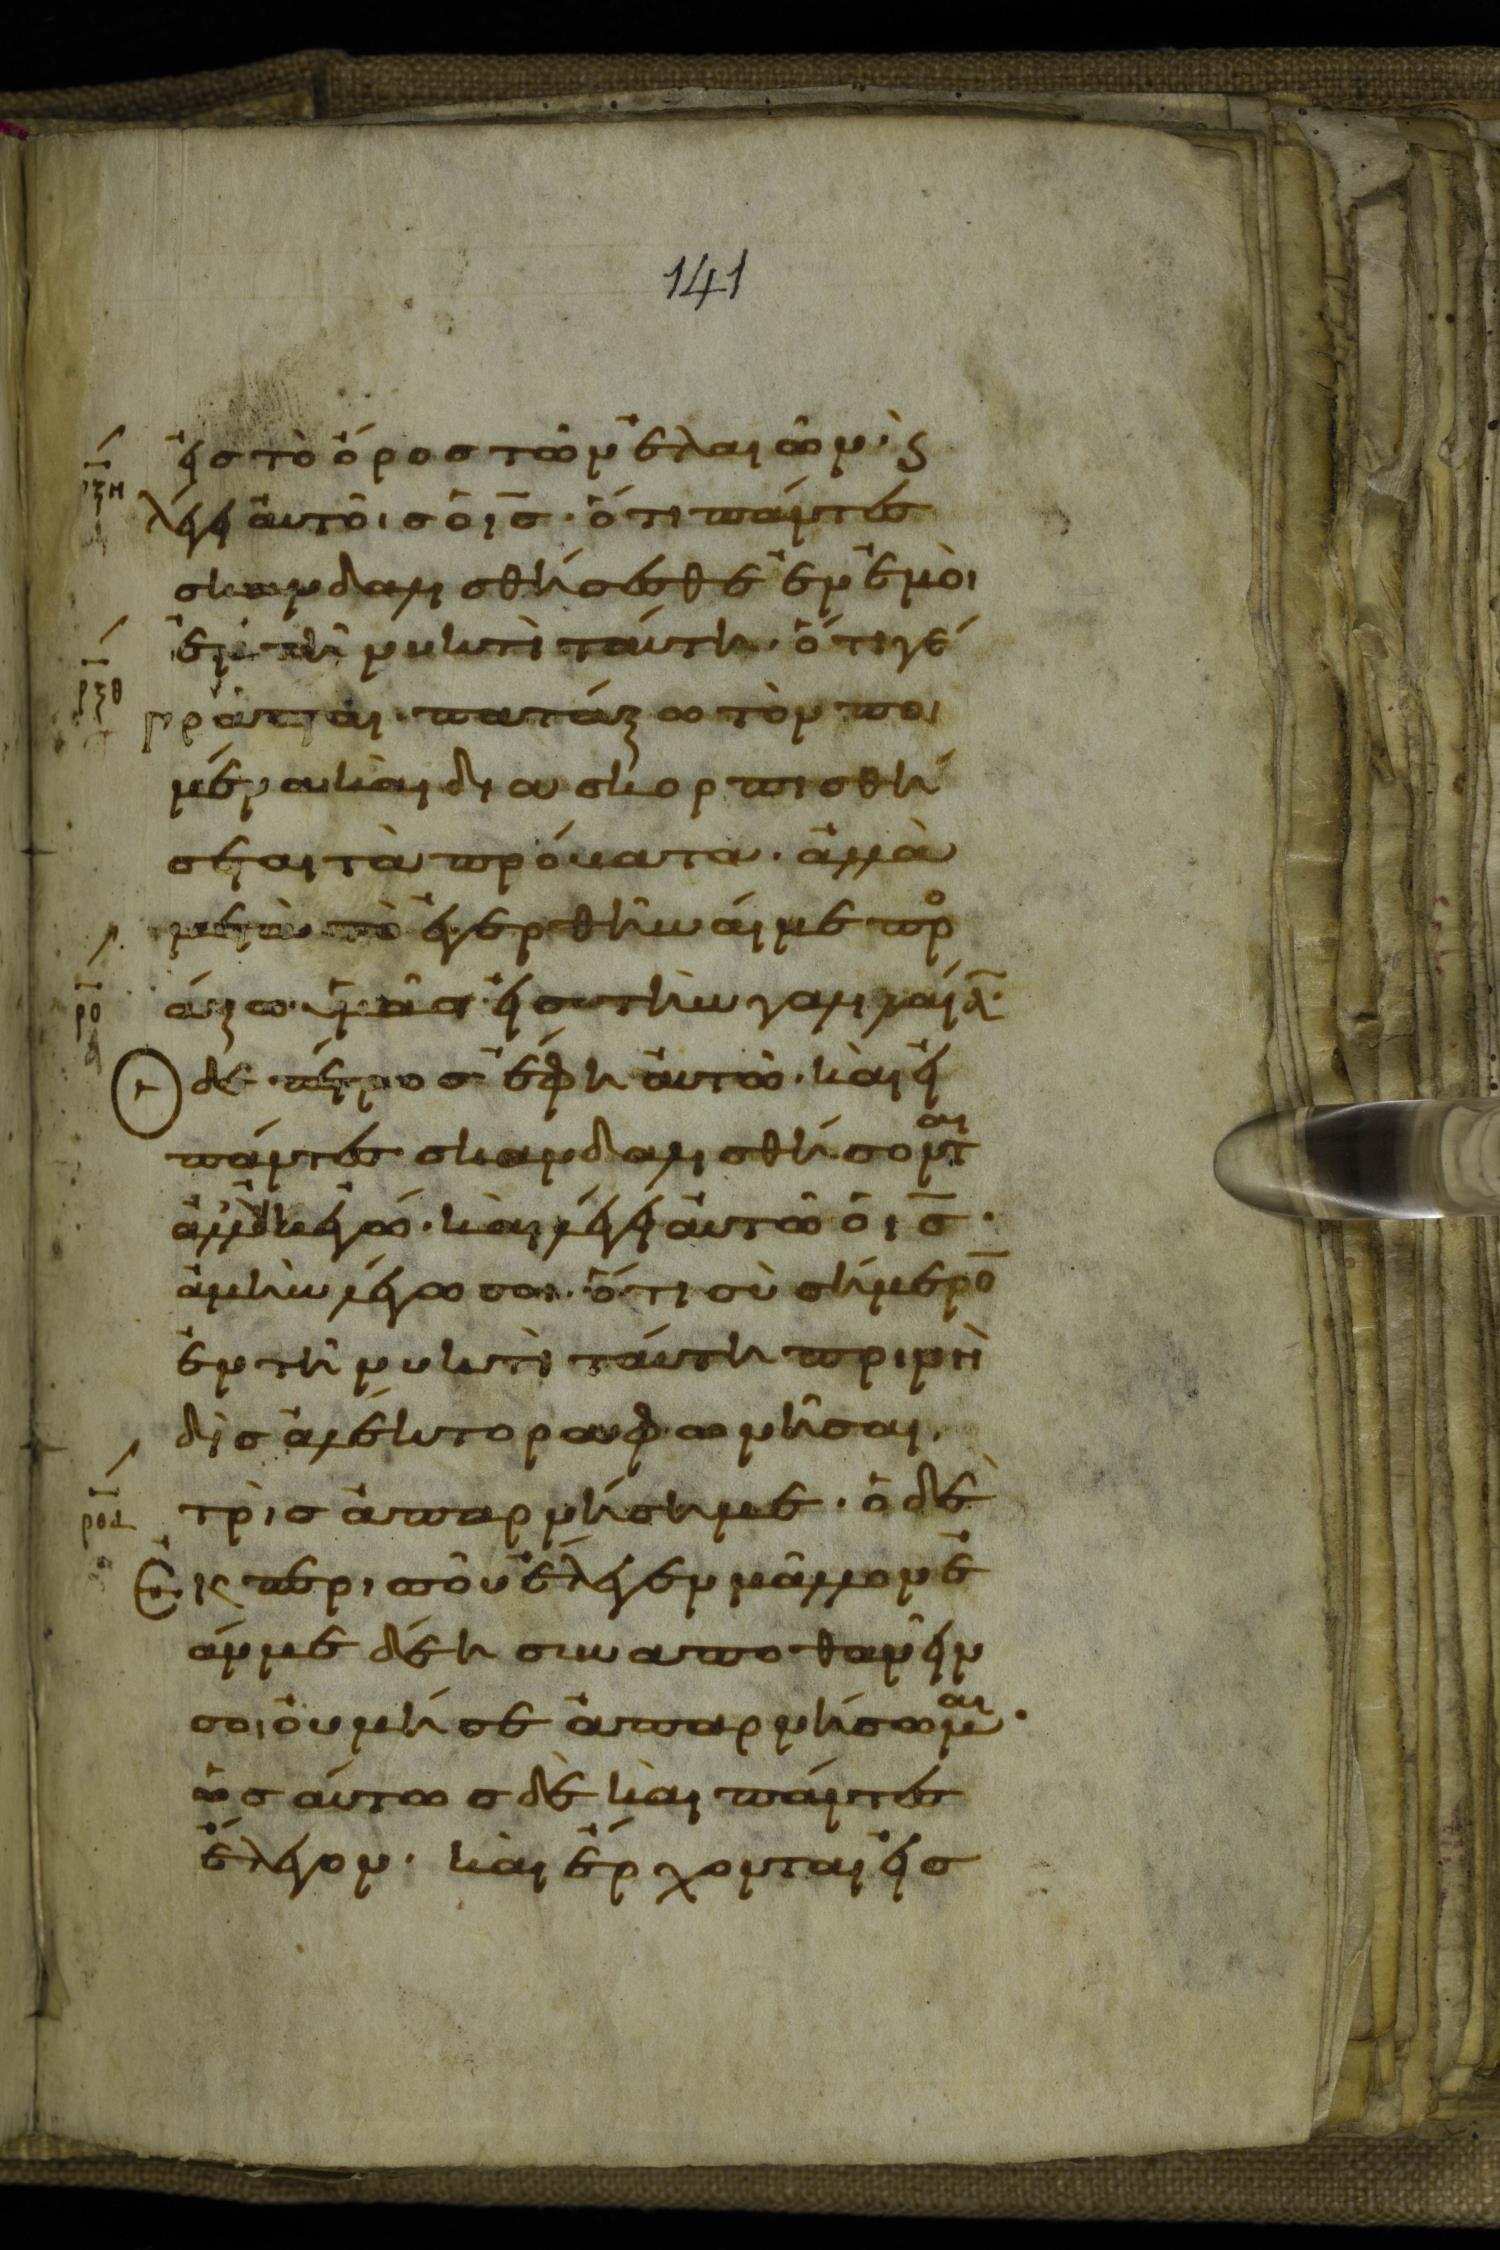 141
εἰς τὸ ὄρος τῶν ἐλαιῶν· ϛ
λέγει αὐτοῖς ὁ ι̅ς̅· ὅτι πάντες
σκανδαλισθήσεσθε ἐν ἐμοὶ
ἐν τῆ νυκτὶ ταύτη· ὅτι γέ
γραπται· πατάξω τὸν ποι
μένα καὶ διασκορπισθή
σεται τὰ πρόβατα· ἀλλὰ
μετὰ τὸ ἐγερθῆναί με πρ
ρξη
ρξθ
ρο
άξω ὑμᾶς εἰς τὴν γαλιλαίαν·
Ο δὲ πέτρος ἔφη αὐτῶ· καὶ εἰ
πάντες σκανδαλισθήσονται
ἀλλ οὐκ ἐγώ· καὶ λέγει αὐτῶ ὁ ι̅ς̅·
ἀμὴν λέγω σοι· ὅτι σὺ σήμερο̅
ἐν τῆ νυκτὶ ταύτη πρινὴ
δὶς ἀλέκτορα φωνῆσαι,
τρὶς ἀπαρνήση με· ὁ δὲ
ροα
ἐκ περισσοῦ ἔλεγεν μᾶλλον ἐ
άν με δέη συναποθανεῖν
σοι οὐ μή σε ἀπαρνήσωμαι·
ὡσαύτως δὲ καὶ πάντες
ἔλεγον· καὶ ἔρχονται εἰς